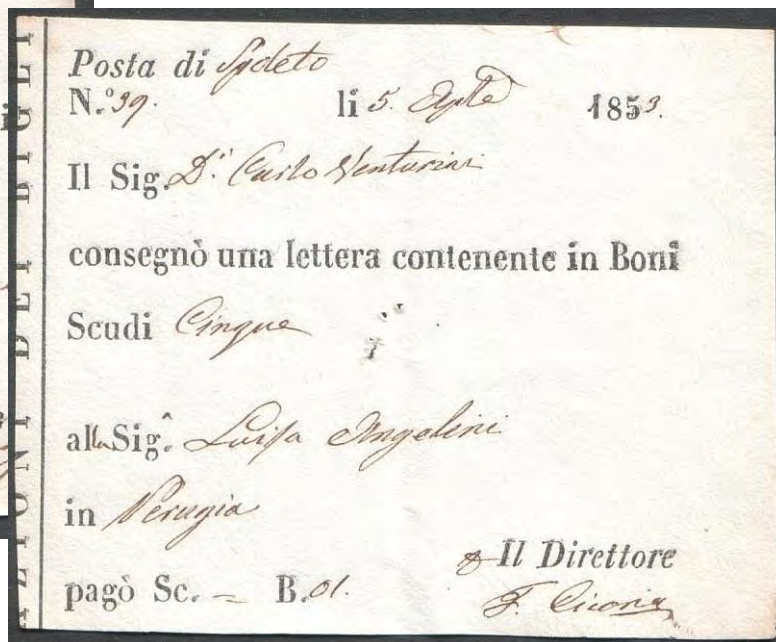 Posta di Spoleto
N.º 39. li 5. Aple 1853.
Il Sig. Dr. Carlo Venturini
consegnò una lettera contenente in Boni
Scudi Cinque
alla Sigª. Luisa Angelini
in Perugia
Il Direttore
pagò Sc. = B. 01.
F. Ciconia